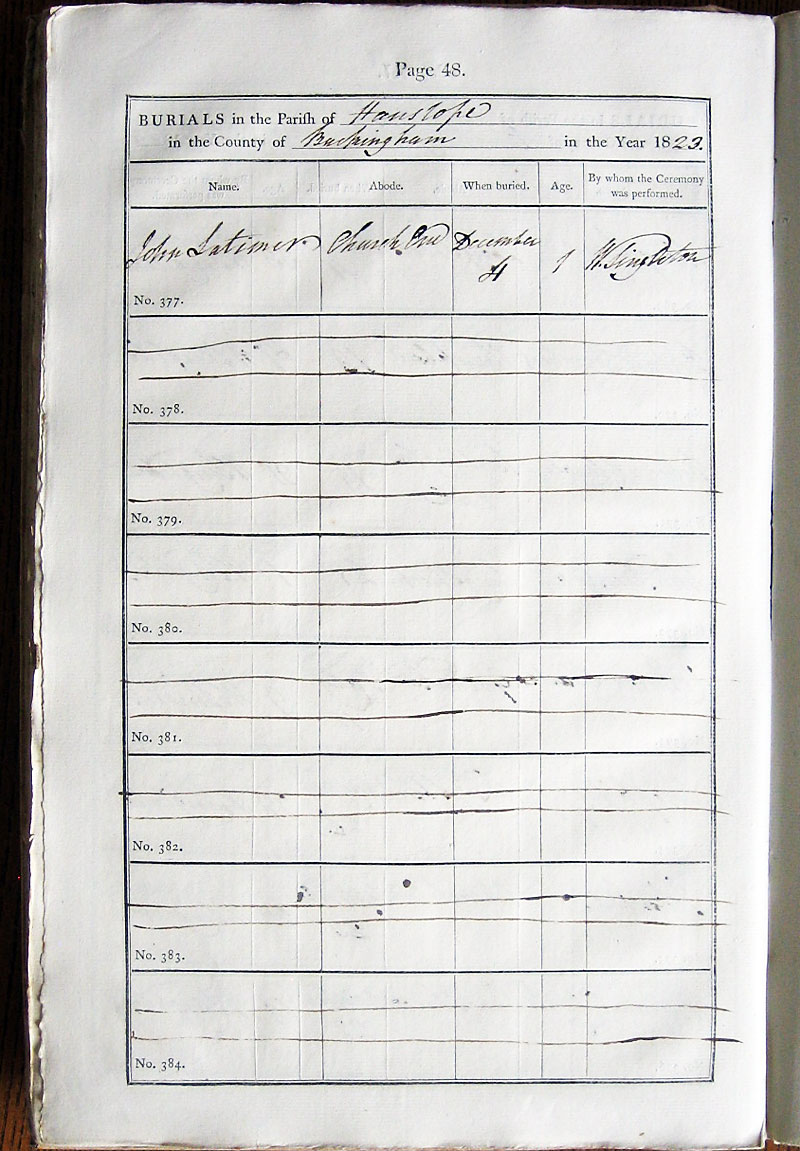 Page 48.
BURIALS in the Parish of Hanslope
in the County of Buckingham in the Year 1823.
Name. Abode. When buried. Age. By whom the Ceremony was performed.
John Latimer Church End December 4 W. Singleton
No. 377.
No. 378.
No. 379.
No. 380.
No. 381.
No. 382.
No. 383.
No. 384.